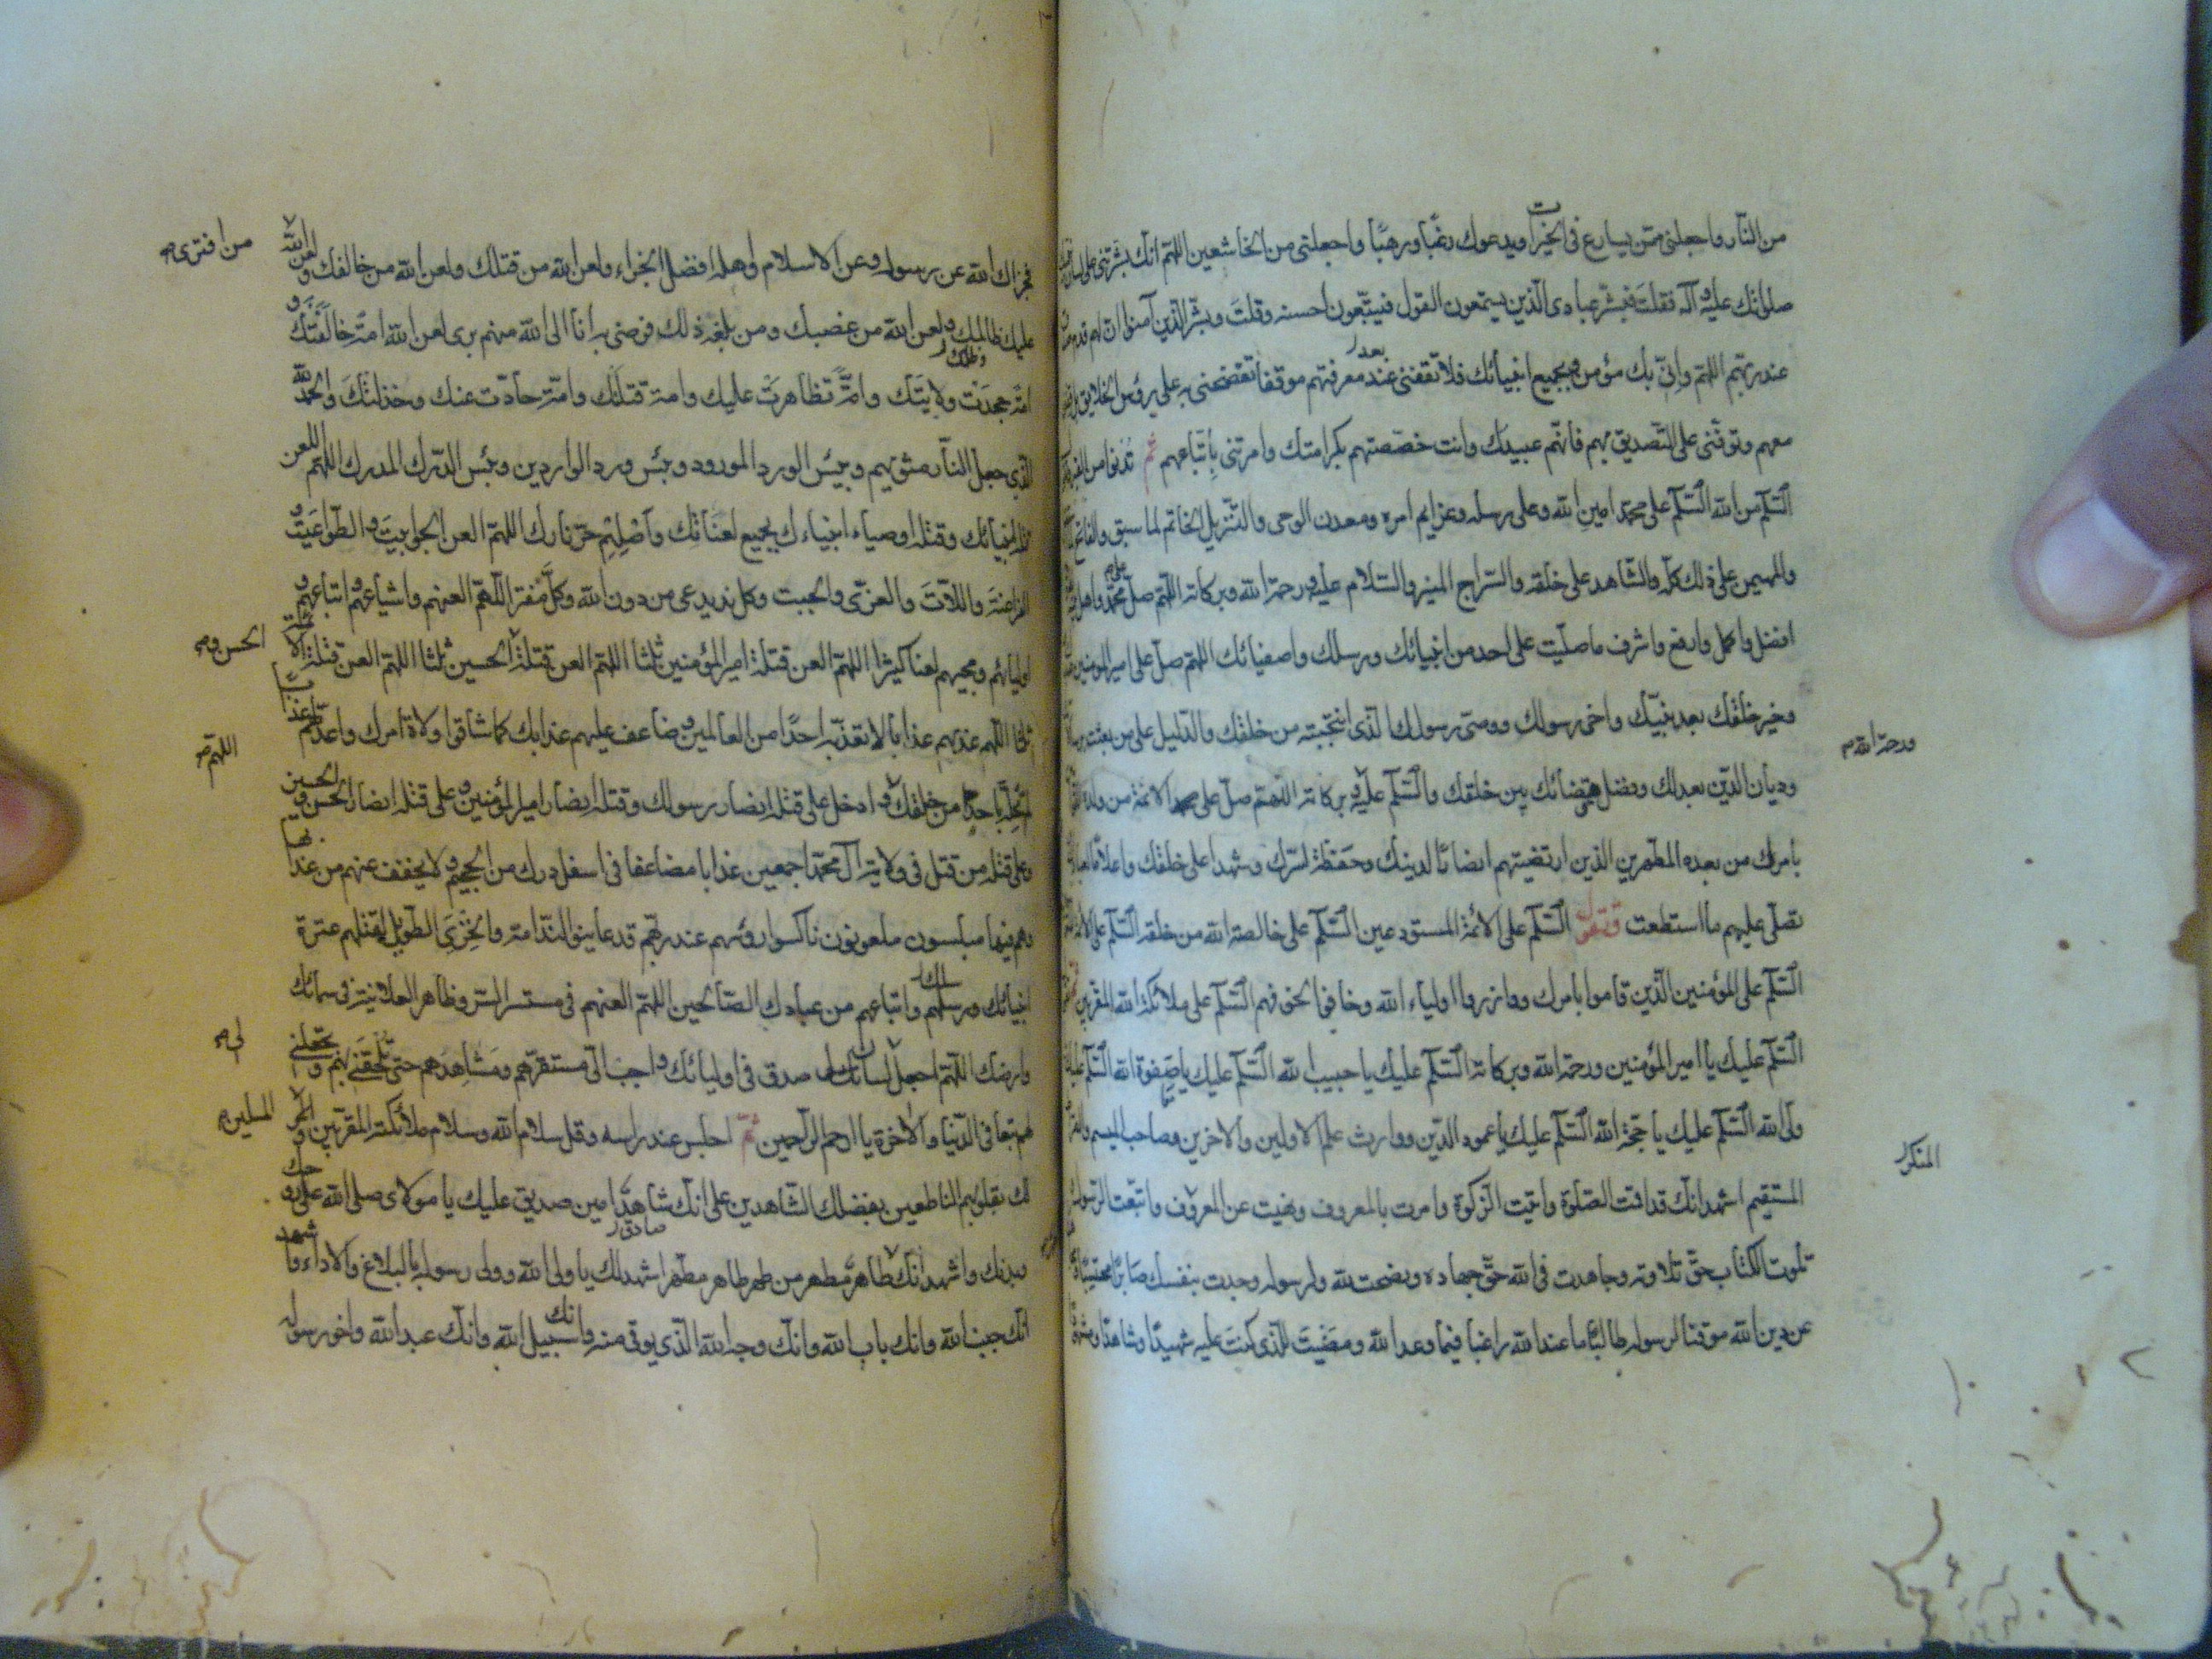 من النار واجعلنى ممن يسارع فى الخيرات ويدعوك رغبا ورهبا واجعلنى من الخاشعين اللهم انك بشرتنى على لسان
صلواتك عليه وآله فقلت فبشر عبادى الذين يستمعون القول فيتبعون احسنه وقلت وبشر الذين آمنوا ان لهم قدم
عند ربهم اللهم وانى بك مؤمن وبجميع انبيائك فلا تقفنى بعد معرفتهم موقفا تفضحنى به على رؤس الخلايق
معهم وتوفنى على التصديق بهم فانهم عبيدك وانت خصصتهم بكرامتك وامرتنى باتباعهم ثم تدنوا من القبر
السلم من الله السلم على محمد امين الله وعلى رسله وعزايم امره ومعدن الوحى والتنزيل الخاتم لما سبق والفاتح
والمهيمن على ذلك كله والشاهد على خلقه والسراج المنير والسلام عليه ورحمة الله وبركاته اللهم صل على محمد واهل
افضل واكمل وارفع واشرف ما صليت على احد من انبيائك ورسلك واصفيائك اللهم صل على امير المؤمنين
وخير خلقك بعد نبيك واخى رسولك ووصى رسولك الذى انتجبته من خلقك والدليل على من بعثته
ورحمة الله
وديان الدين بعدلك وفصل قضائك بين خلقك والسلم عليه وبركاته اللهم صل على الائمة من ولده
بامرك من بعده المطهرين الذين ارتضيتهم انصارا لدينك وحفظة لسرك وشهداء على خلقك واعلاما
تصلى عليهم ما استطعت وتقول السلم على الائمة المستودعين السلم على خالصة الله من خلقه السلم على
السلم على المؤمنين الذين قاموا بامرك ووازروا اولياء الله وخافوا لخوفهم السلم على ملائكة الله المقربين
السلم عليك يا امير المؤمنين ورحمة الله وبركاته السلم عليك يا حبيب الله السلم عليك يا صفوة الله السلم عليك
ولى الله السلم عليك يا حجة الله السلم عليك يا عمود الدين ووارث علم الاولين والاخرين وصاحب الميسم
المنكر
المستقيم اشهد انك قد اقمت الصلوة واتيت الزكوة وامرت بالمعروف ونهيت عن المعروف واتبعت الرسول
تلوت الكتاب حق تلاوته وجاهدت فى الله حق جهاده ونصحت لله ولرسوله وجدت بنفسك صابرا محتسبا
عن دين الله موقنا لرسوله طالبا ما عند الله راغبا فيما وعد الله ومضيت للذى كنت عليه شهيدا وشاهدا
فجزاك الله عن رسوله وعن الاسلام واهله افضل الجزاء ولعن الله من قتلك ولعن الله من خالفك ولعن الله
من افترى
عليك وظلمك ولعن الله من غصبك ومن بلغه ذلك فرضى به انا الى الله منهم برى لعن الله امة خالفتك و
امة جحدت ولايتك وامة تظاهرت عليك وامة قتلتك وامة حادت عنك وخذلتك والحمد لله
الذى جعل النار مثويهم وبئس الورد المورود وبئس ورد الواردين وبئس الدرك المدرك اللهم العن
قتلة انبيائك وقتلة اوصياء انبياءك بجميع لعناتك واصلهم حر نارك اللهم العن الجوابيت والطواغيت و
الفراعنة واللات والعزى والجبت وكل ند يدعى من دون الله وكل مفتر اللهم العنهم واشياعهم واتباعهم و
اوليائهم ومحبيهم لعنا كثيرا اللهم العن قتلة امير المؤمنين ثلثا اللهم العن قتلة الحسين ثلثا اللهم العن قتلة
الحسن و
ثلثا اللهم عذبهم عذابا لا تعذبه احدا من العالمين وضاعف عليهم عذابك كما شاقوا ولاة امرك واعد لهم عذابا
اللهم
لم تحله باحد من خلقك وادخل على قتلة انصار رسولك وقتلة انصار امير المؤمنين وعلى قتلة انصار الحسن والحسين
وعلى قتلة من قتل فى ولاية آل محمد اجمعين عذابا مضاعفا فى اسفل درك من الجحيم ولا يخفف عنهم من عذابها
وهم فيها مبلسون ملعونون ناكسوا رؤسهم عند ربهم قد عاينوا الندامة والخزى الطويل لقتلهم عترة
انبيائك ورسلك واتباعهم من عبادك الصالحين اللهم العنهم فى مستسر السر وظاهر العلانية فى سمائك
وارضك اللهم اجعل لسان صدق فى اوليائك واحبب الى مستقرهم ومشاهدهم حتى تلحقنى بهم وتجعلنى
لى
لهم تبعا فى الدنيا والاخرة يا ارحم الراحمين ثم اجلس عند راسه وقل سلام الله وسلام ملائكته المقربين و
المسلمين
لك بقلوبهم الناطقين بفضلك الشاهدين على انك صادق امين صديق عليك يا مولاى صلى الله على روحك
وبدنك واشهد انك طاهر مطهر من طهر طاهر مطهر اشهد لك يا ولى الله وولى رسوله بالبلاغ والاداء واشهد
انك جنب الله وانك باب الله وانك وجه الله الذى يوتى منه وانك سبيل الله وانك عبد الله واخو رسوله